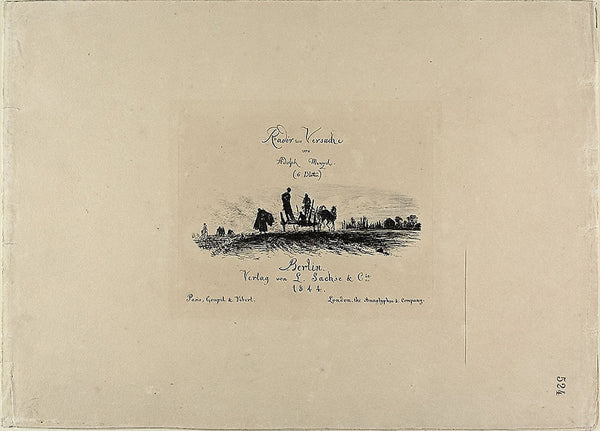 Radir=Versuche
von
Adolph Menzel.
(6 Blätter)
Berlin.
Verlag von L. Sachse & Cie
1844.
Paris, Goupil & Vibert.
London, the Anaglyphic Company.
524